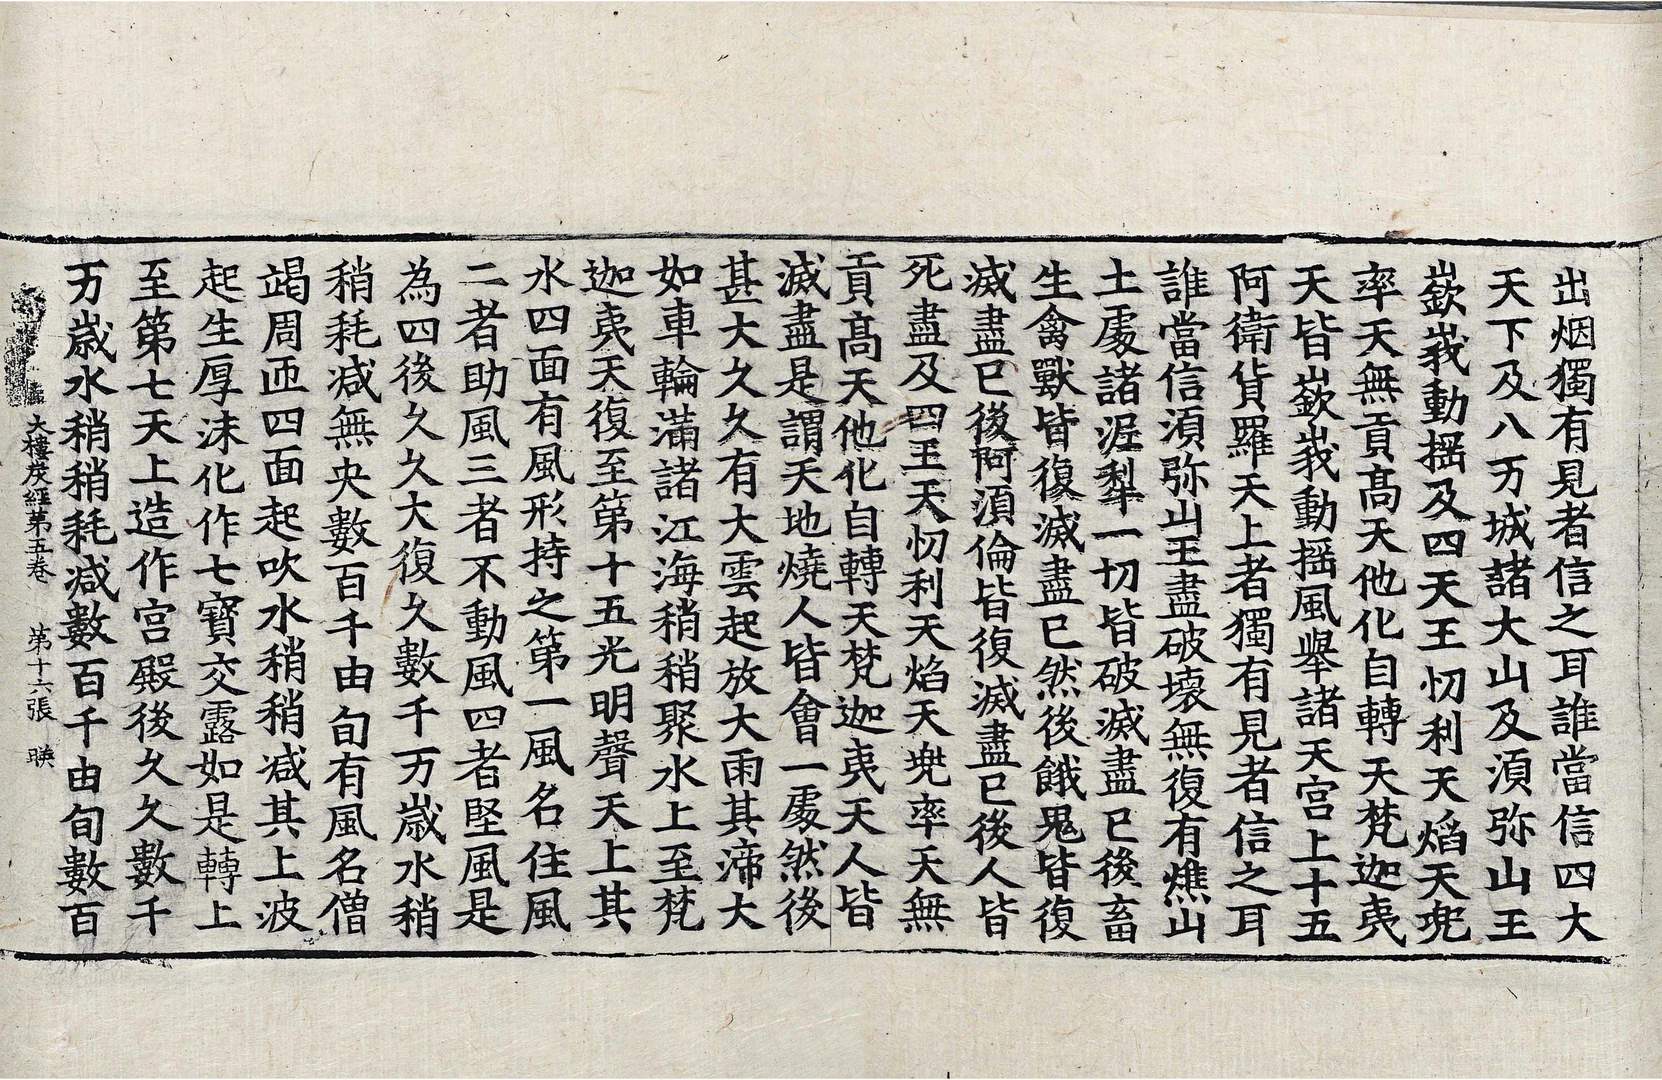 出烟獨有見者信之耳誰當信四大
天下及八万城諸大山及湏弥山王
嶔峩動揺及四天王忉利天焰天兠
率天無貢髙天他化自轉天梵迦夷
天皆嶔峩動揺風舉諸天宫上十五
阿衛貨羅天上者獨有見者信之耳
誰當信湏弥山王盡破壞無復有燋山
土處諸泥犁一切皆破滅盡已後畜
生禽獸皆復滅盡已然後餓鬼皆復
滅盡已後阿湏倫皆復滅盡已後人皆
死盡及四王天忉利天焰天兠率天無
貢髙天他化自轉天梵迦夷天人皆
滅盡是謂天地燒人皆會一處然後
甚大久久有大雲起放大雨其渧大
如車輪滿諸江海稍稍聚水上至梵
迦夷天復至第十五光明聲天上其
水四面有風形持之第一風名住風
二者助風三者不動風四者堅風是
為四後久久大復久數千万歳水稍
稍耗减無央數百千由旬有風名僧
竭周迊四面起吹水稍稍减其上波
起生厚沫化作七寶交露如是轉上
至第七天上造作宫殿後久久數千
万歳水稍稍耗减數百千由旬數百
大樓炭經第五卷　第十六張　映